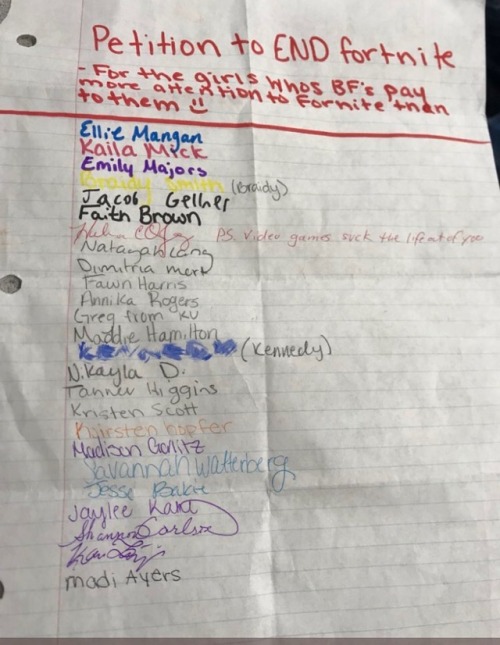 Petition to END fortnite
- For the girls whos BF's pay
more attention to Fornite than
to them
Ellie Mangan
Kaila Mick
Emily Majors
Braidy Smith (Braidy)
Jacob Gellner
Faith Brown
PS. Video games suck the life out of you
Dimitria
Fawn Harris
Annika Rogers
Greg from KU
Maddie Hamilton
(Kennedy)
Nikayla D.
Tanner Higgins
Kristen Scott
Khirsten hopfer
Madison Gorlitz
Savannah Watterberg
Jesse
Jaylee
Shannon Carlson
Madi Ayers